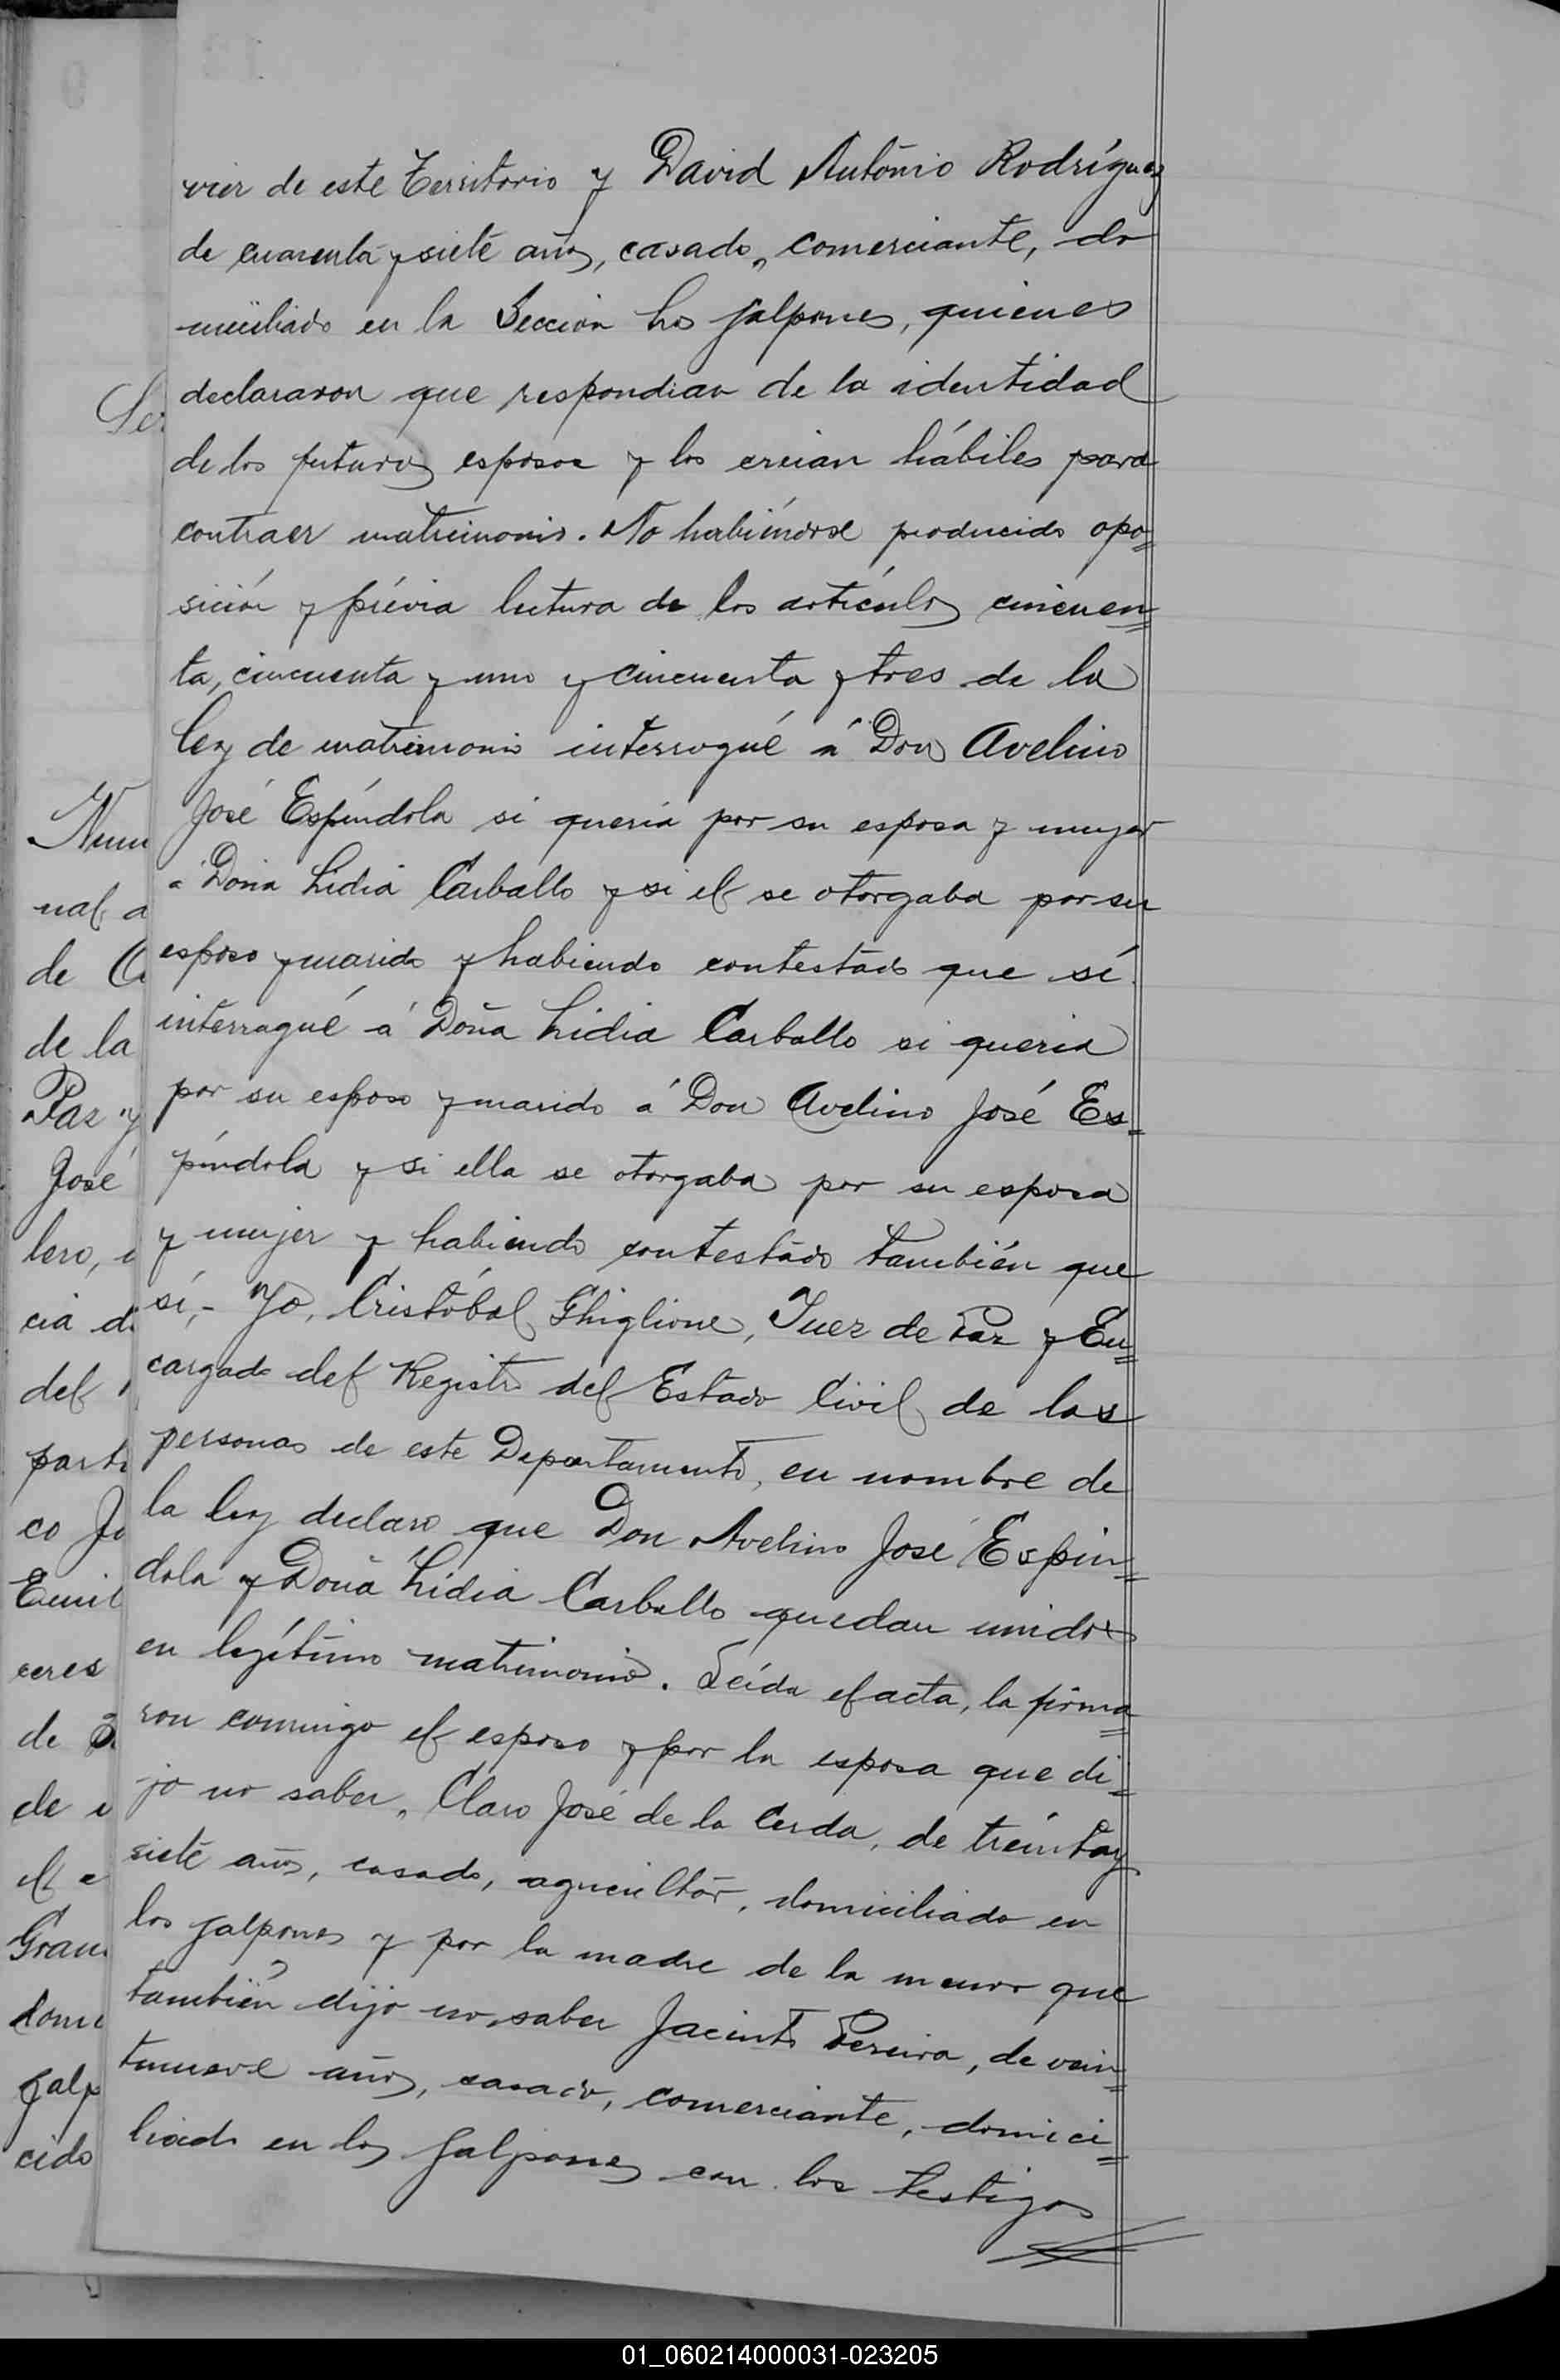 vier de este Territorio y David António Rodríguez
de cuarenta y siete años, casado, comerciante, do
miciliado en la Sección Los Galpones, quienes
declararon que respondian de la identidad
de los futuros esposos y los creian hábiles para
contraer matrimonio. No habiéndose producido opo=
sición y prévia lectura de los artículos cincuen=
ta, cincuenta y uno y cincuenta y tres de la
ley de matrimonio interrogué á Don Avelino
José Espíndola si queria por su esposa y mujer
á Doña Lidia Carballo y si el se otorgaba por su
esposo y marido y habiendo contestado que sí
interrogué á Doña Lidia Carballo si queria
por su esposo y marido á Don Avelino José Es=
píndola y si ella se otorgaba por su esposa
y mujer y habiendo contestado también que
sí,- Yo, Cristóbal Ghiglione, Juez de Paz y En=
cargado del Registro del Estado Civil de las
personas de este Departamento, en nombre de
la ley declaro que Don Avelino José Espín=
dola y Doña Lidia Carballo quedan unidos
en legítimo matrimonio. Leída el acta, la firma=
ron conmigo el esposo y por la esposa que di=
jo no saber, Claro José de la Cerda, de treinta y
siete años, casado, agricultor, domiciliado en
los galpones y por la madre de la menor que
también dijo no saber Jacinto Pereira, de vein=
tinueve años, casado, comerciante, domici=
liado en los Galpones con los testigos
Num
nal a
de C
de la
Paz y
José
lero,
cia di
del
parti
co Jo
Emil
ceres
de
de
el
Gran
domi
Galp
cido
01_060214000031-023205